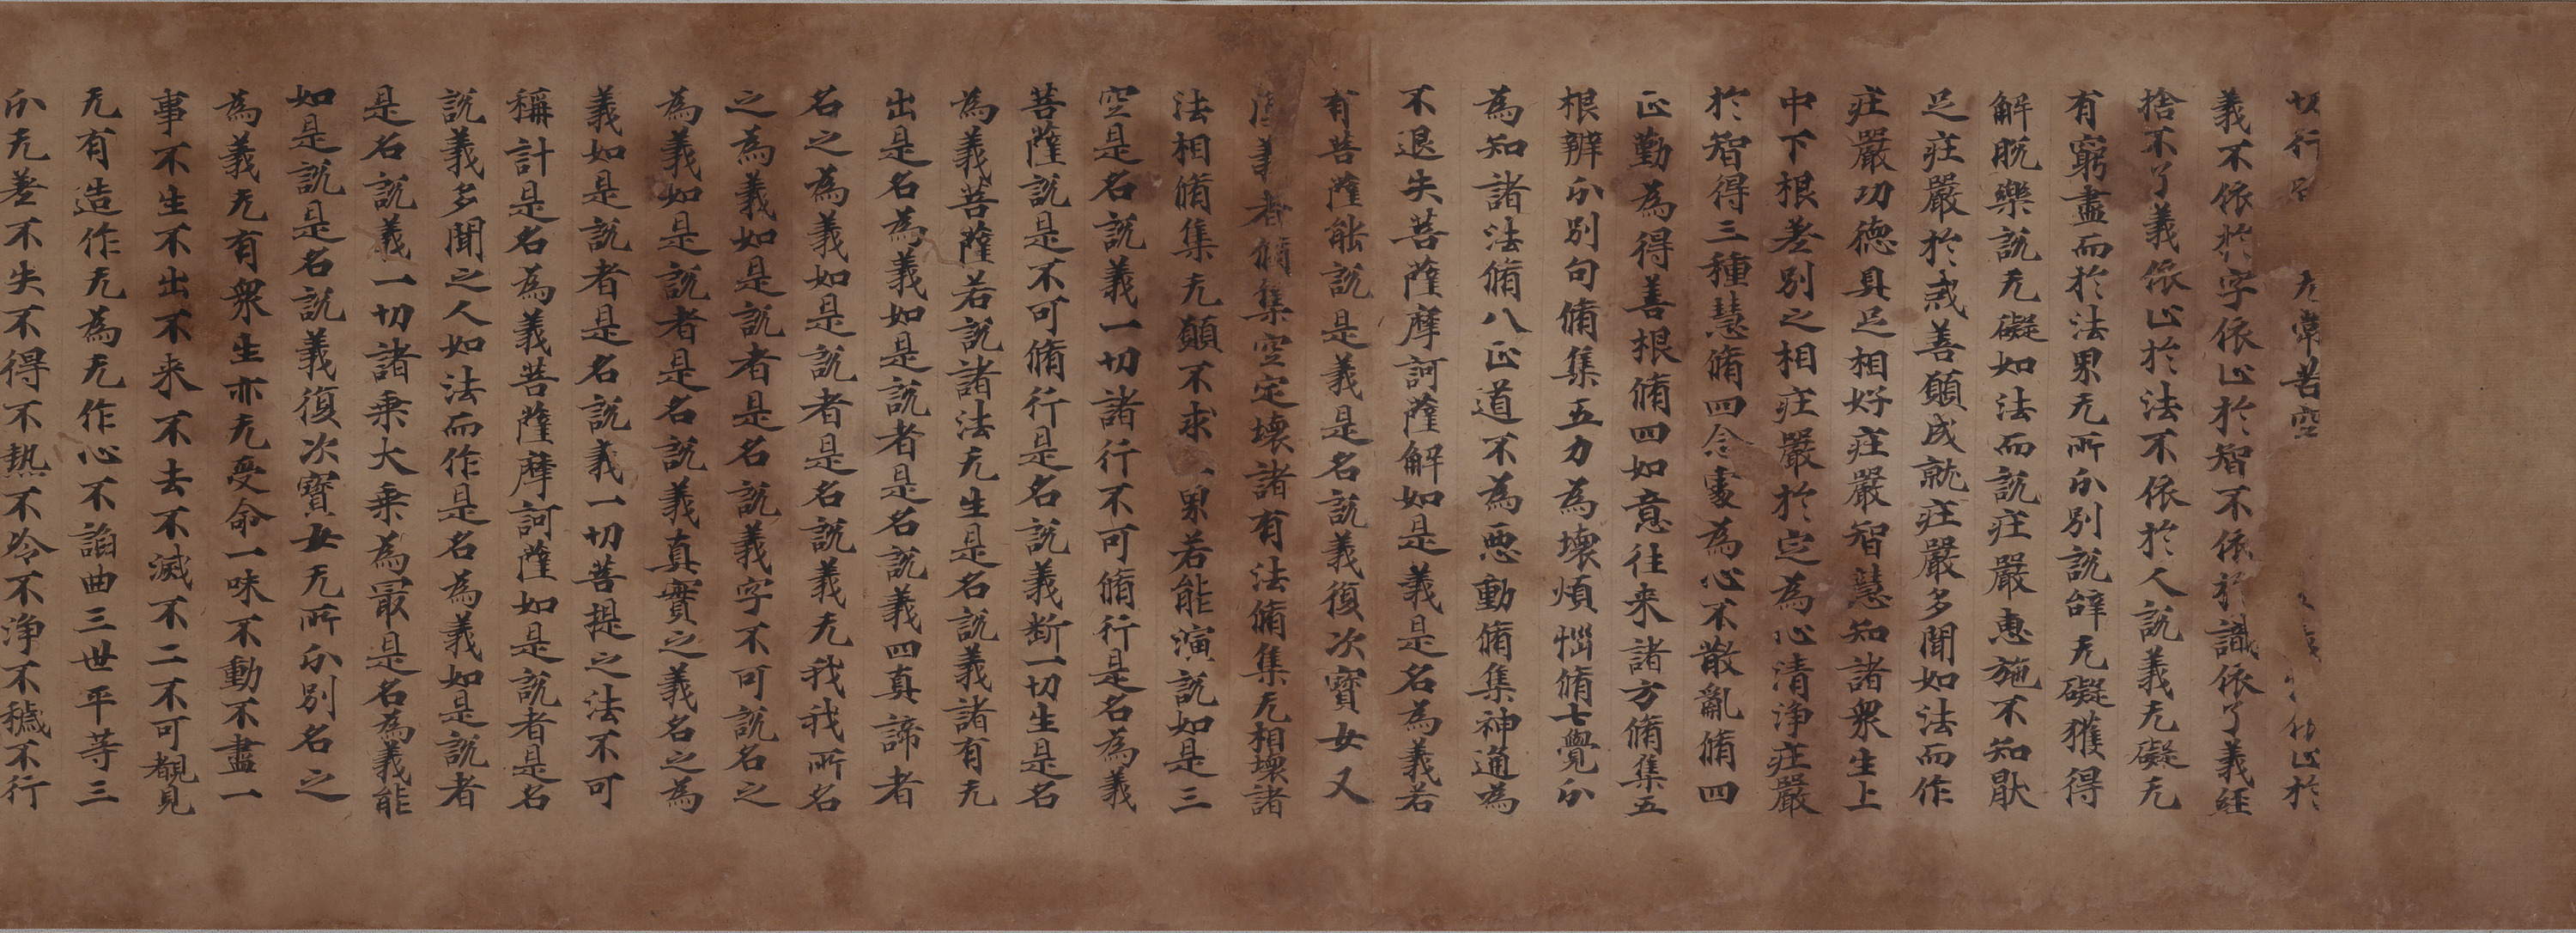 切行 无常苦空 止於
義不依於字依止於智不依於識依了義經
捨不了義依止於法不依於人說義无礙无
有窮盡而於法界无所分別說辝无礙獲得
解脫樂說无礙如法而說庄嚴惠施不知猒
足庄嚴於戒善願成就庄嚴多聞如法而作
庄嚴功德具足相好庄嚴智慧知諸衆生上
中下根差別之相庄嚴於定為心清淨庄嚴
於智得三種慧脩四念處為心不散亂脩四
正勤為得善根脩四如意往来諸方脩集五
根辯分別句脩集五力為壞煩惱脩七覺分
為知諸法脩八正道不為惡動脩集神通為
不退失菩薩摩訶薩解如是義是名為義若
有菩薩能說是義是名說義復次寶女又
義者脩集空定壞諸有法脩集无相壞諸
法相脩集无願不求 果若能演說如是三
空是名說義一切諸行不可脩行是名為義
菩薩說是不可脩行是名說義断一切生是名
為義菩薩若說諸法无生是名說義諸有无
出是名為義如是說者是名說義四真諦者
名之為義如是說者是名說義无我我所名
之為義如是說者是名說義字不可說名之
為義如是說者是名說義真實之義名之為
義如是說者是名說義一切菩提之法不可
稱計是名為義菩薩摩訶薩如是說者是名
說義多聞之人如法而作是名為義如是說者
是名說義一切諸乘大乘為最是名為義能
如是說是名說義復次寶女无所分別名之
為義无有衆生亦无受命一味不動不盡一
事不生不出不来不去不滅不二不可覩見
无有造作无為无作心不諂曲三世平等三
分无差不失不得不熱不冷不淨不穢不行